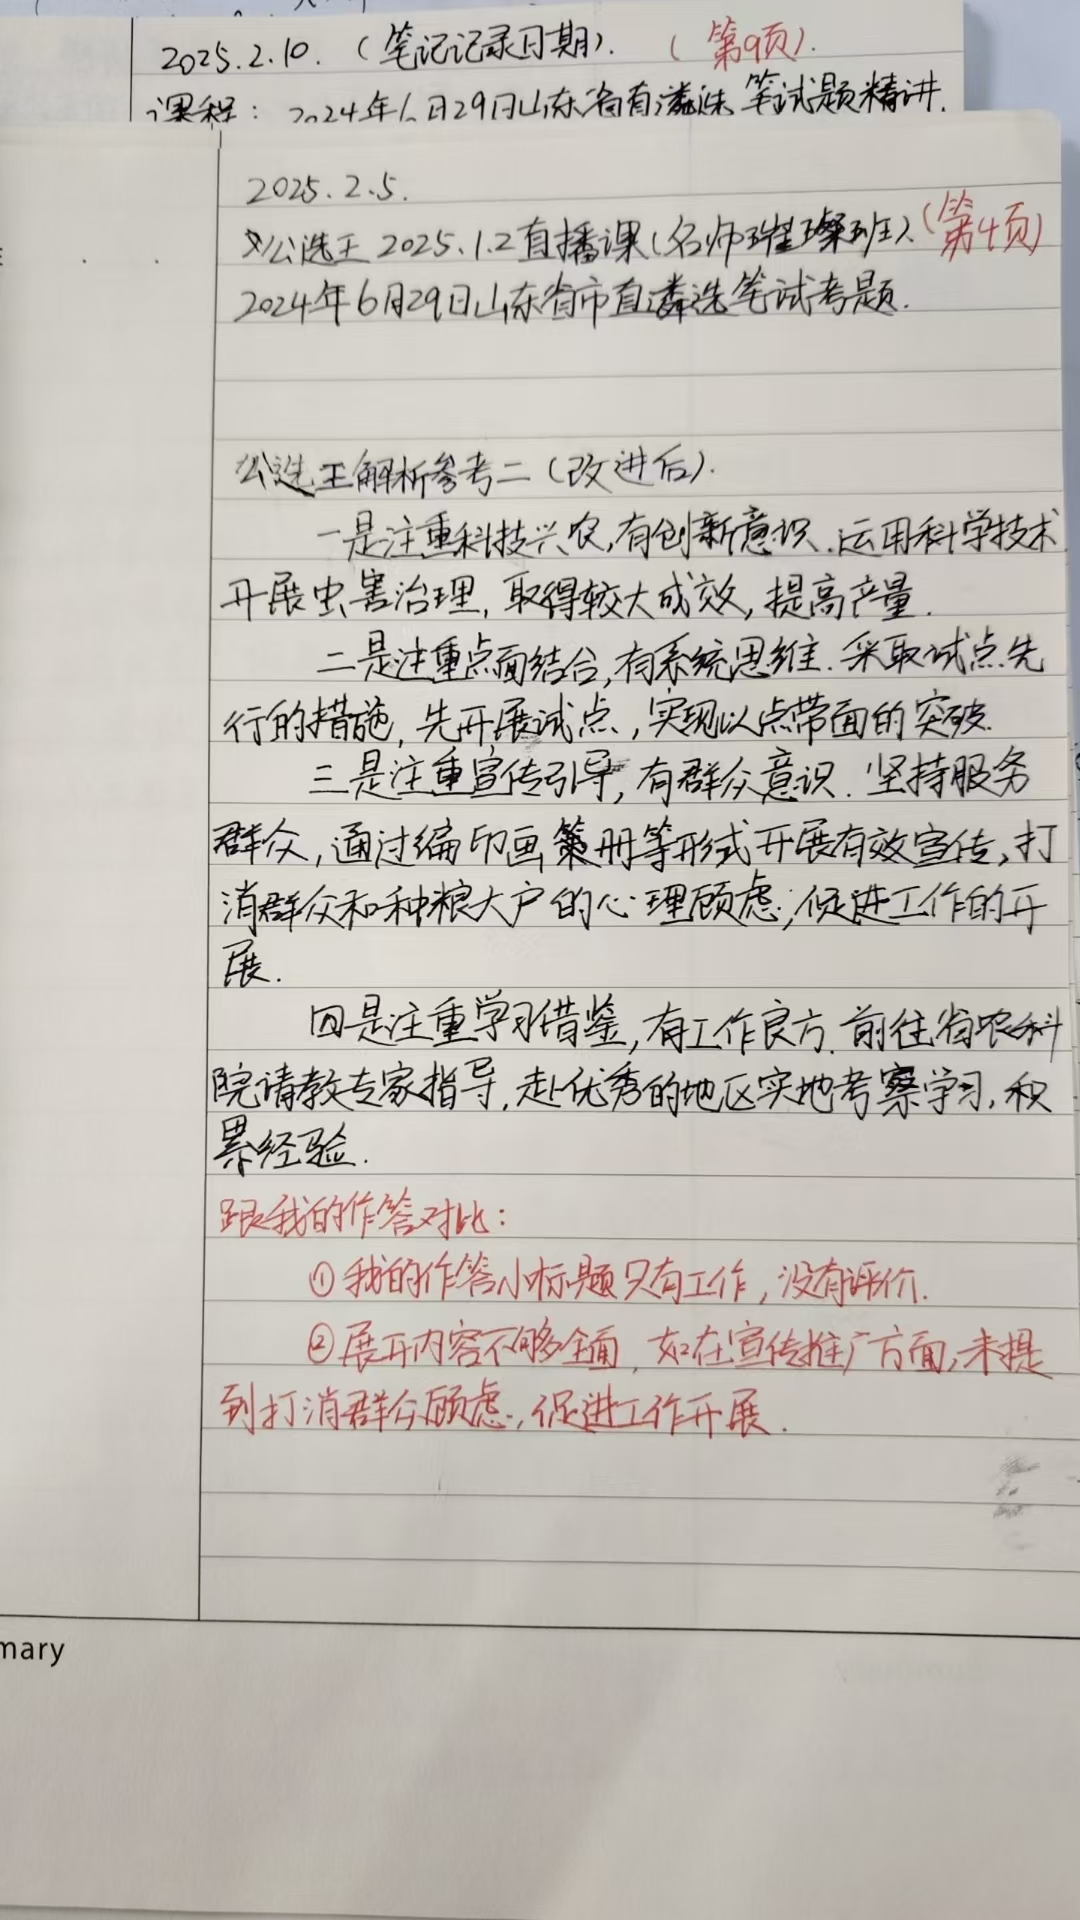 2025.2.10.（笔记记录日期）.（第9页）.
课程：2024年6月29日山东省直遴选笔试题精讲.
2025.2.5.
公选王2025.1.2直播课（名师璀璨班）.（第4页）
2024年6月29日山东省市直遴选笔试考题.
公选王解析参考二（改进后）.
一是注重科技兴农,有创新意识.运用科学技术
开展虫害治理,取得较大成效,提高产量.
二是注重点面结合,有系统思维.采取试点先
行的措施,先开展试点,实现以点带面的突破.
三是注重宣传引导,有群众意识.坚持服务
群众,通过编印画册等形式开展有效宣传,打
消群众和种粮大户的心理顾虑,促进工作的开
展.
四是注重学习借鉴,有工作良方.前往省农科
院请教专家指导,赴优秀的地区实地考察学习,积
累经验.
跟我的作答对比：
①我的作答小标题只有工作,没有评价.
②展开内容不够全面,如在宣传推广方面,未提
到打消群众顾虑,促进工作开展.
mary